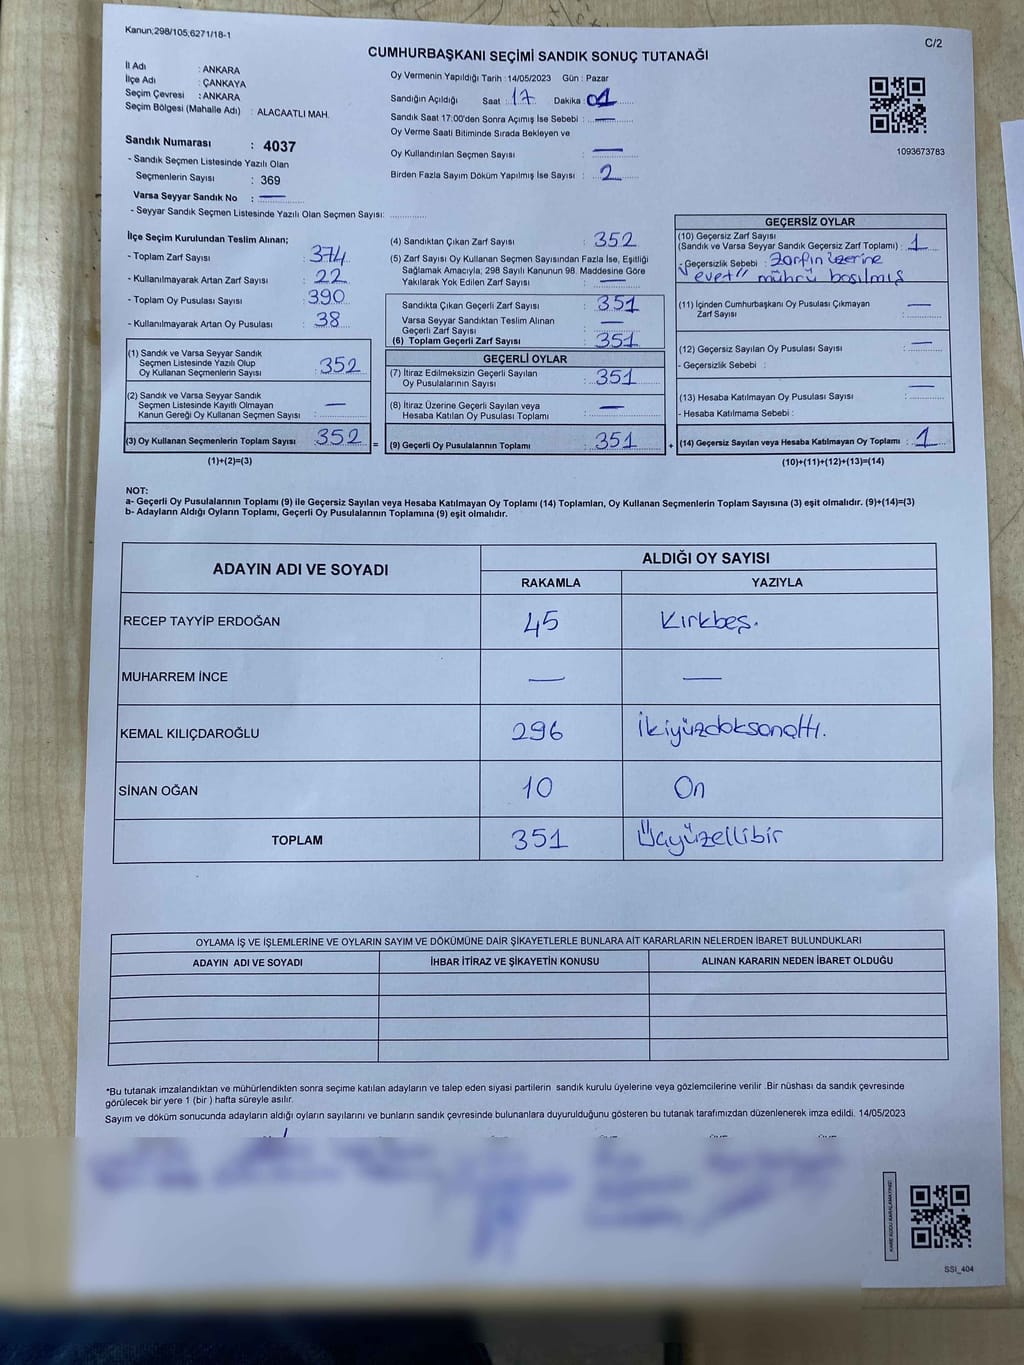 Kanun,298/105,6271/18-1
C/2
CUMHURBAŞKANI SEÇİMİ SANDIK SONUÇ TUTANAĞI
İl Adı : ANKARA
İlçe Adı : ÇANKAYA
Seçim Çevresi : ANKARA
Seçim Bölgesi (Mahalle Adı) : ALACAATLI MAH.
Oy Vermenin Yapıldığı Tarih : 14/05/2023 Gün : Pazar
Sandığın Açıldığı Saat : 17 Dakika : 01
Sandık Saat 17:00'den Sonra Açımış İse Sebebi : —
Oy Verme Saati Bitiminde Sırada Bekleyen ve
Oy Kullandırılan Seçmen Sayısı : —
Birden Fazla Sayım Döküm Yapılmış İse Sayısı : 2
1093673783
Sandık Numarası : 4037
- Sandık Seçmen Listesinde Yazılı Olan
Seçmenlerin Sayısı : 369
Varsa Seyyar Sandık No : —
- Seyyar Sandık Seçmen Listesinde Yazılı Olan Seçmen Sayısı:
İlçe Seçim Kurulundan Teslim Alınan;
- Toplam Zarf Sayısı : 374
- Kullanılmayarak Artan Zarf Sayısı : 22
- Toplam Oy Pusulası Sayısı : 390
- Kullanılmayarak Artan Oy Pusulası : 38
(1) Sandık ve Varsa Seyyar Sandık
Seçmen Listesinde Yazılı Olup
Oy Kullanan Seçmenlerin Sayısı : 352
(2) Sandık ve Varsa Seyyar Sandık
Seçmen Listesinde Kayıtlı Olmayan
Kanun Gereği Oy Kullanan Seçmen Sayısı : —
(3) Oy Kullanan Seçmenlerin Toplam Sayısı : 352 =
(1)+(2)=(3)
(4) Sandıktan Çıkan Zarf Sayısı : 352
(5) Zarf Sayısı Oy Kullanan Seçmen Sayısından Fazla İse, Eşitliği
Sağlamak Amacıyla; 298 Sayılı Kanunun 98. Maddesine Göre
Yakılarak Yok Edilen Zarf Sayısı : —
Sandıkta Çıkan Geçerli Zarf Sayısı : 351
Varsa Seyyar Sandıktan Teslim Alınan
Geçerli Zarf Sayısı : —
(6) Toplam Geçerli Zarf Sayısı : 351
GEÇERLİ OYLAR
(7) İtiraz Edilmeksizin Geçerli Sayılan
Oy Pusulalarının Sayısı : 351
(8) İtiraz Üzerine Geçerli Sayılan veya
Hesaba Katılan Oy Pusulası Toplamı : —
(9) Geçerli Oy Pusulalarının Toplamı : 351 +
GEÇERSİZ OYLAR
(10) Geçersiz Zarf Sayısı
(Sandık ve Varsa Seyyar Sandık Geçersiz Zarf Toplamı) : 1
- Geçersizlik Sebebi : Zarfın üzerine
"evet" mührü basılmış
(11) İçinden Cumhurbaşkanı Oy Pusulası Çıkmayan
Zarf Sayısı : —
(12) Geçersiz Sayılan Oy Pusulası Sayısı : —
- Geçersizlik Sebebi :
(13) Hesaba Katılmayan Oy Pusulası Sayısı : —
- Hesaba Katılmama Sebebi :
(14) Geçersiz Sayılan veya Hesaba Katılmayan Oy Toplamı : 1
(10)+(11)+(12)+(13)=(14)
NOT:
a- Geçerli Oy Pusulalarının Toplamı (9) ile Geçersiz Sayılan veya Hesaba Katılmayan Oy Toplamı (14) Toplamları, Oy Kullanan Seçmenlerin Toplam Sayısına (3) eşit olmalıdır. (9)+(14)=(3)
b- Adayların Aldığı Oyların Toplamı, Geçerli Oy Pusulalarının Toplamına (9) eşit olmalıdır.
ADAYIN ADI VE SOYADI ALDIĞI OY SAYISI
RAKAMLA YAZIYLA
RECEP TAYYİP ERDOĞAN 45 Kırkbeş.
MUHARREM İNCE — —
KEMAL KILIÇDAROĞLU 296 İkiyüzdoksanaltı.
SİNAN OĞAN 10 On
TOPLAM 351 Üçyüzellibir
OYLAMA İŞ VE İŞLEMLERİNE VE OYLARIN SAYIM VE DÖKÜMÜNE DAİR ŞİKAYETLERLE BUNLARA AİT KARARLARIN NELERDEN İBARET BULUNDUKLARI
ADAYIN ADI VE SOYADI İHBAR İTİRAZ VE ŞİKAYETİN KONUSU ALINAN KARARIN NEDEN İBARET OLDUĞU
*Bu tutanak imzalandıktan ve mühürlendikten sonra seçime katılan adayların ve talep eden siyasi partilerin sandık kurulu üyelerine veya gözlemcilerine verilir .Bir nüshası da sandık çevresinde
görülecek bir yere 1 (bir ) hafta süreyle asılır.
Sayım ve döküm sonucunda adayların aldığı oyların sayılarını ve bunların sandık çevresinde bulunanlara duyurulduğunu gösteren bu tutanak tarafımızdan düzenlenerek imza edildi. 14/05/2023
KARE KODU KARALAMAYINIZ!
SSI_404